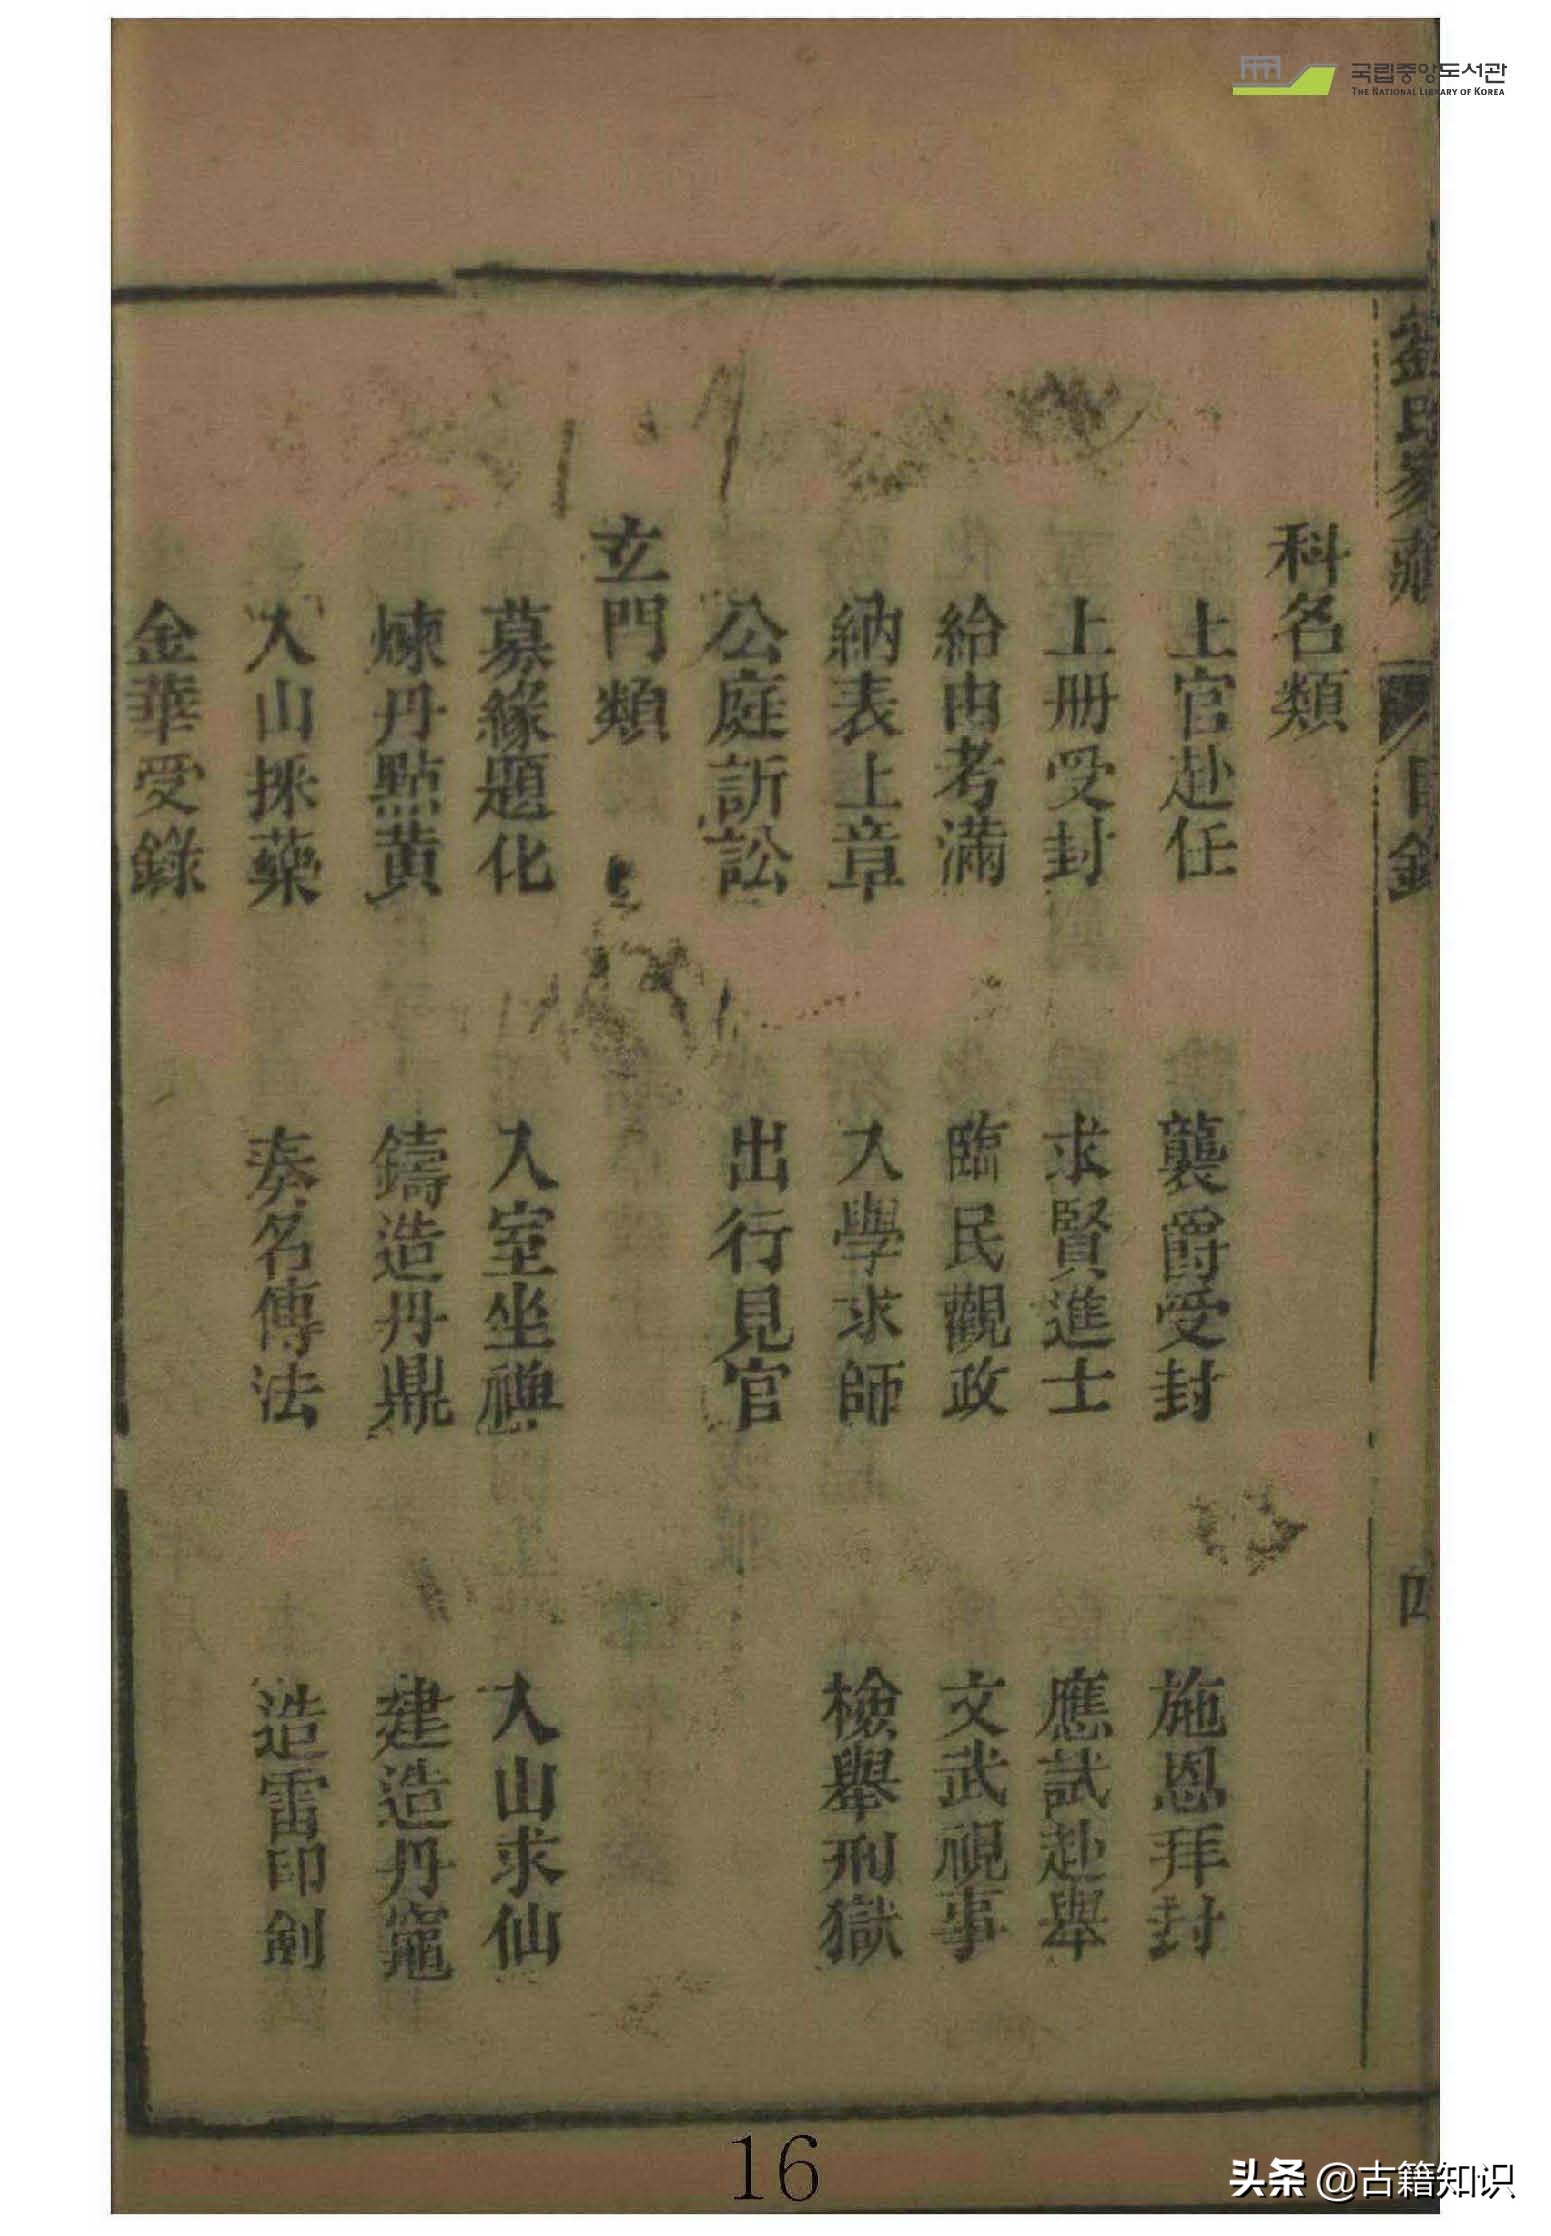 국립중앙도서관
THE NATIONAL LIBRARY OF KOREA
目錄
四
科名類
上官赴任 襲爵受封 施恩拜封
上册受封 求賢進士 應試赴舉
給由考滿 臨民觀政 文武視事
納表上章 入學求師 檢舉刑獄
公庭訢訟 出行見官
玄門類
募緣題化 入室坐禪 入山求仙
煉丹點黃 鑄造丹鼎 建造丹竈
入山採藥 奏名傳法 造雷印劍
金華受錄
16
头条 @古籍知识